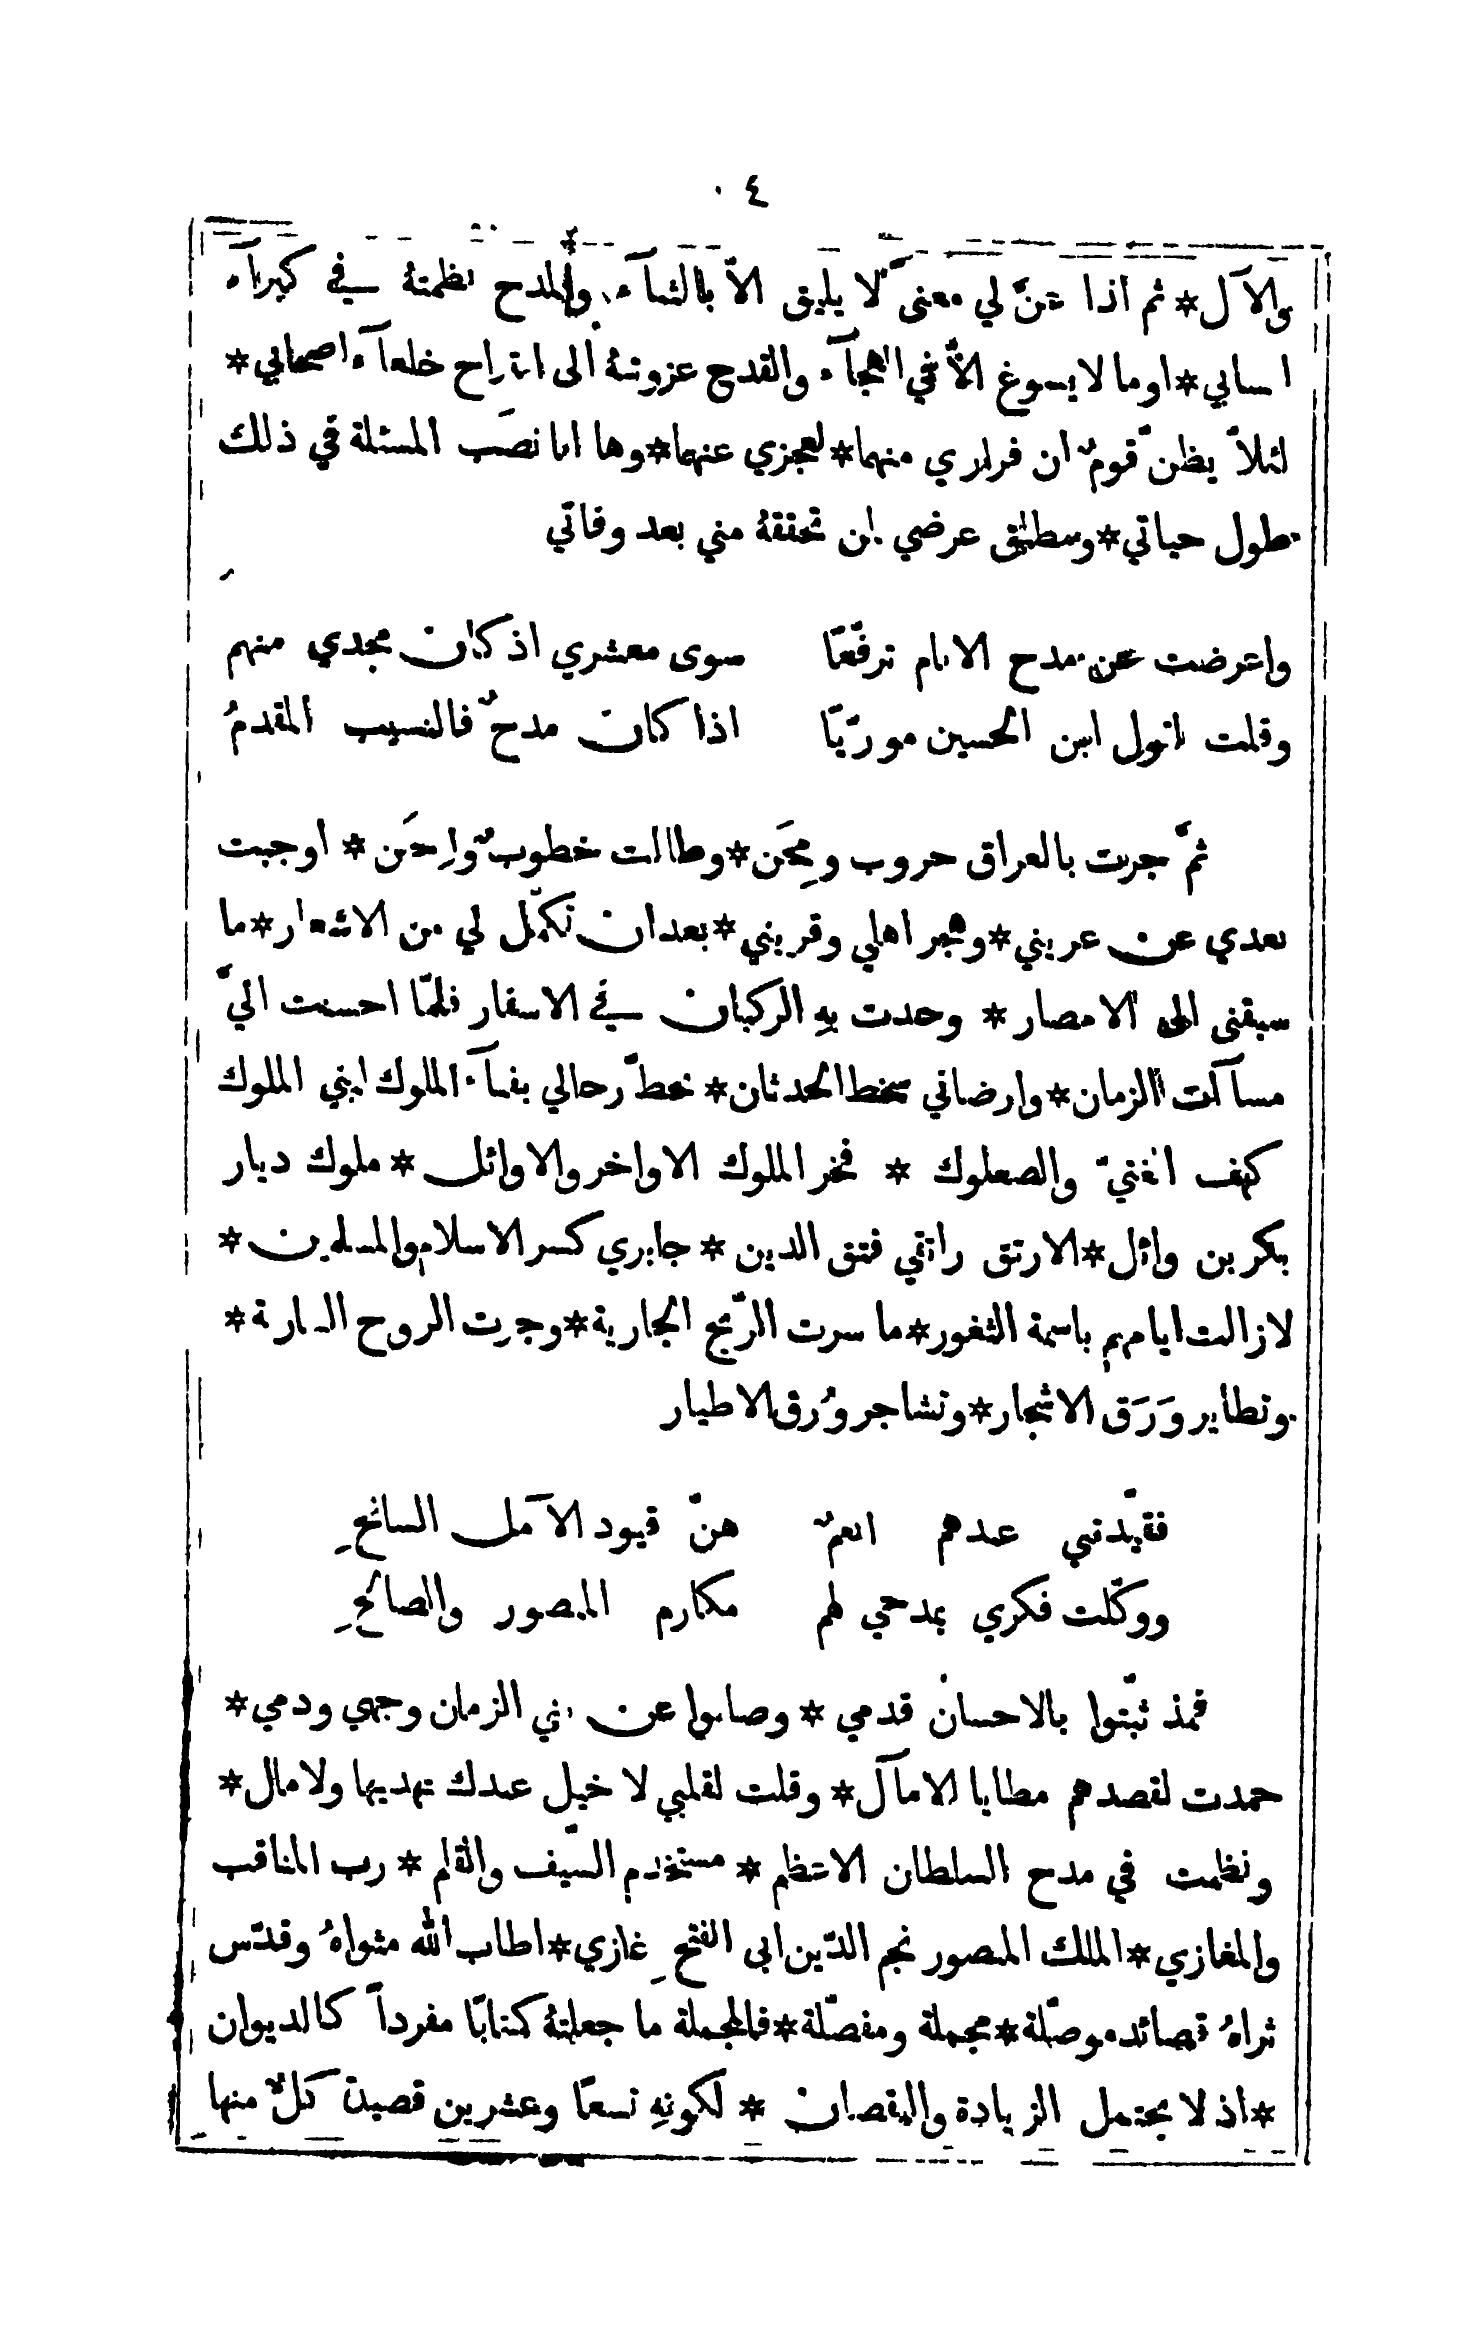 ٤
والآل * ثم اذا عنَّ لي معنىً لا يليق الاَّ بالثناء والمدح نظمتهُ في كبراء
انسابي * او ما لا يسوغ الاَّ في الهجاء والقدح عزوتهُ الى اقتراح خلعاء اصحابي *
لئلاَّ يظنَّ قومٌ ان فراري منهما * لعجزي عنهما * وها انا نصَب المسئلة في ذلك
طول حياتي * وسطلق عرضي لمن تحققهُ مني بعد وفاتي
واعرضت عن مدح الانام ترفّعًا سوى معشري اذ كان مجدي منهم
وقلت لقول ابن الحسين مورّيًا اذا كان مدحٌ فالنسيب المقدمُ
ثمَّ جرت بالعراق حروب ومِحَن * وطالت خطوبٌ واِحَن * اوجبت
بعدي عن عريني * وهجر اهلي وقريني * بعد ان تكمّل لي من الاشعار * ما
سبقني الى الامصار * وحدت بهِ الركبان في الاسفار فلمّا احسنت اليَّ
مساآت الزمان * وارضاني سخط الحدثان * بحطّ رحالي بفناء الملوك ابني الملوك
كهف الغنيّ والصعلوك * فخر الملوك الاواخر والاوائل * ملوك ديار
بكر بن وائل * الارتق راتقي فتق الدين * جابري كسر الاسلام والمسلمين *
لازالت ايامهم باسمة الثغور * ما سرت الرّيح الجارية * وجرت الروح السارية *
وتطاير وَرَق الاشجار * وتشاجر وُرق الاطيار
فقيّدتني عندهم انعمٌ هنّ قيود الآمل السانحِ
ووكّلت فكري بمدحي لهم مكارم المنصور والصالحِ
فمذ ثبّتوا بالاحسان قدمي * وصانوا عن بني الزمان وجهي ودمي *
حمدت لقصدهم مطايا الامآل * وقلت لقلبي لا خيل عندك تهديها ولا مال *
ونظمت في مدح السلطان الاعظم * مستخدم السّيف والقلم * رب المناقب
والمغازي * الملك المنصور نجم الدّين ابي الفتحِ غازي * اطاب الله مثواهُ وقدّس
ثراهُ قصائد موصّلة * مجملة ومفصّلة * فالمجملة ما جعلتهُ كتابًا مفرداً كالديوان
* اذ لا يحتمل الزيادة والنقصان * لكونهِ تسعًا وعشرين قصيدة كلٌّ منها